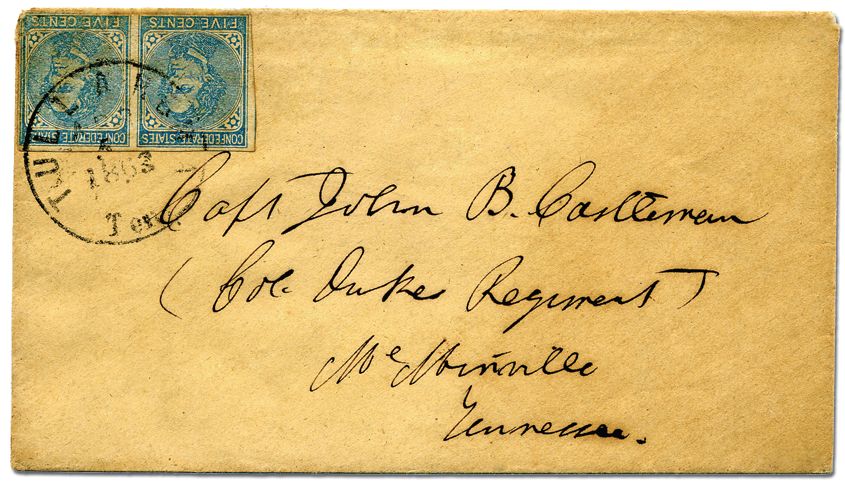 FIVE CENTS FIVE CENTS
CONFEDERATE STATES CONFEDERATE STATES
TULLAHOMA
1863
Ten.
Capt John B. Castleman
(Col. Dukes Regiment)
McMinville
Tennessee.